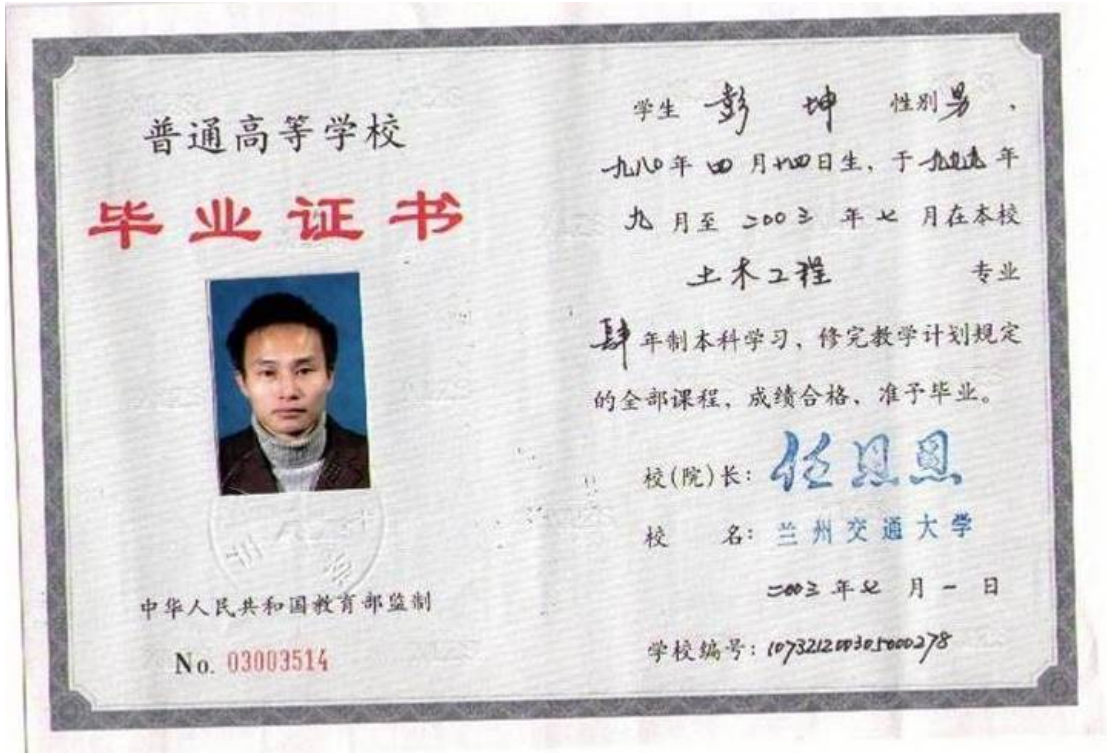 普通高等学校
毕业证书
中华人民共和国教育部监制
No. 03003514
学生 彭 坤 性别 男 、
一九八〇年 四 月 廿四日生、于 一九九九 年
九 月至 二〇〇三 年 七 月在本校
土木工程 专业
肆 年制本科学习、修完教学计划规定
的全部课程、成绩合格、准予毕业。
校(院)长: 任恩恩
校 名: 兰州交通大学
二〇〇三 年 七 月 一 日
学校编号: 107321200305000278